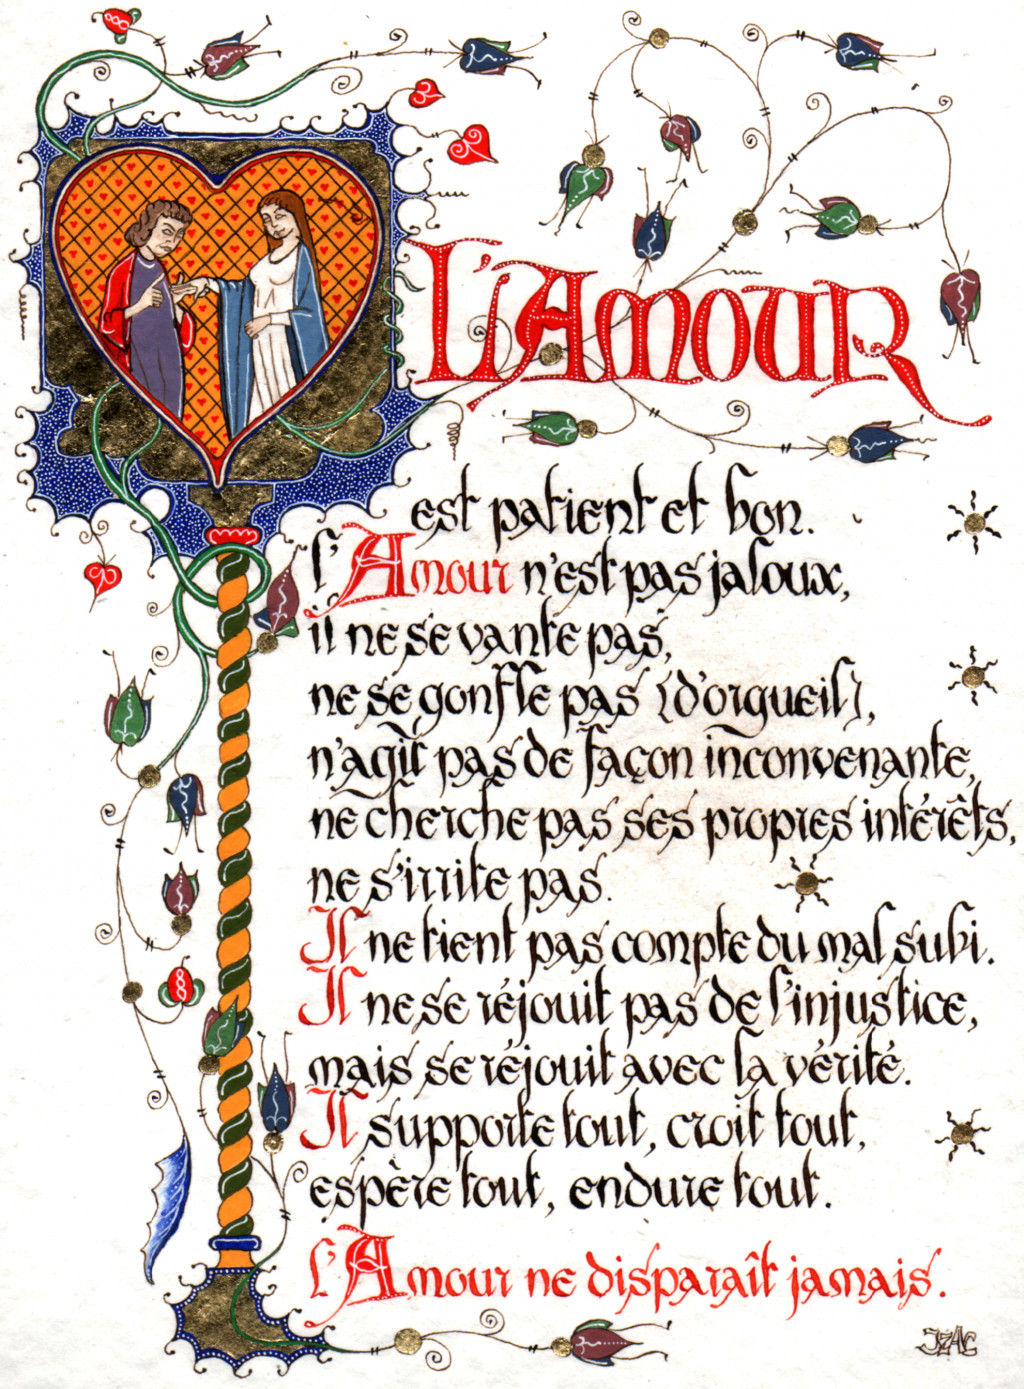 L'AMOUR
est patient et bon.
l'Amour n'est pas jaloux,
il ne se vante pas,
ne se gonfle pas (d'orgueil),
n'agit pas de façon inconvenante,
ne cherche pas ses propres intérêts,
ne s'irrite pas.
Il ne tient pas compte du mal subi.
Il ne se réjouit pas de l'injustice,
mais se réjouit avec la vérité.
Il supporte tout, croit tout,
espère tout, endure tout.
l'Amour ne disparaît jamais.
IZAC